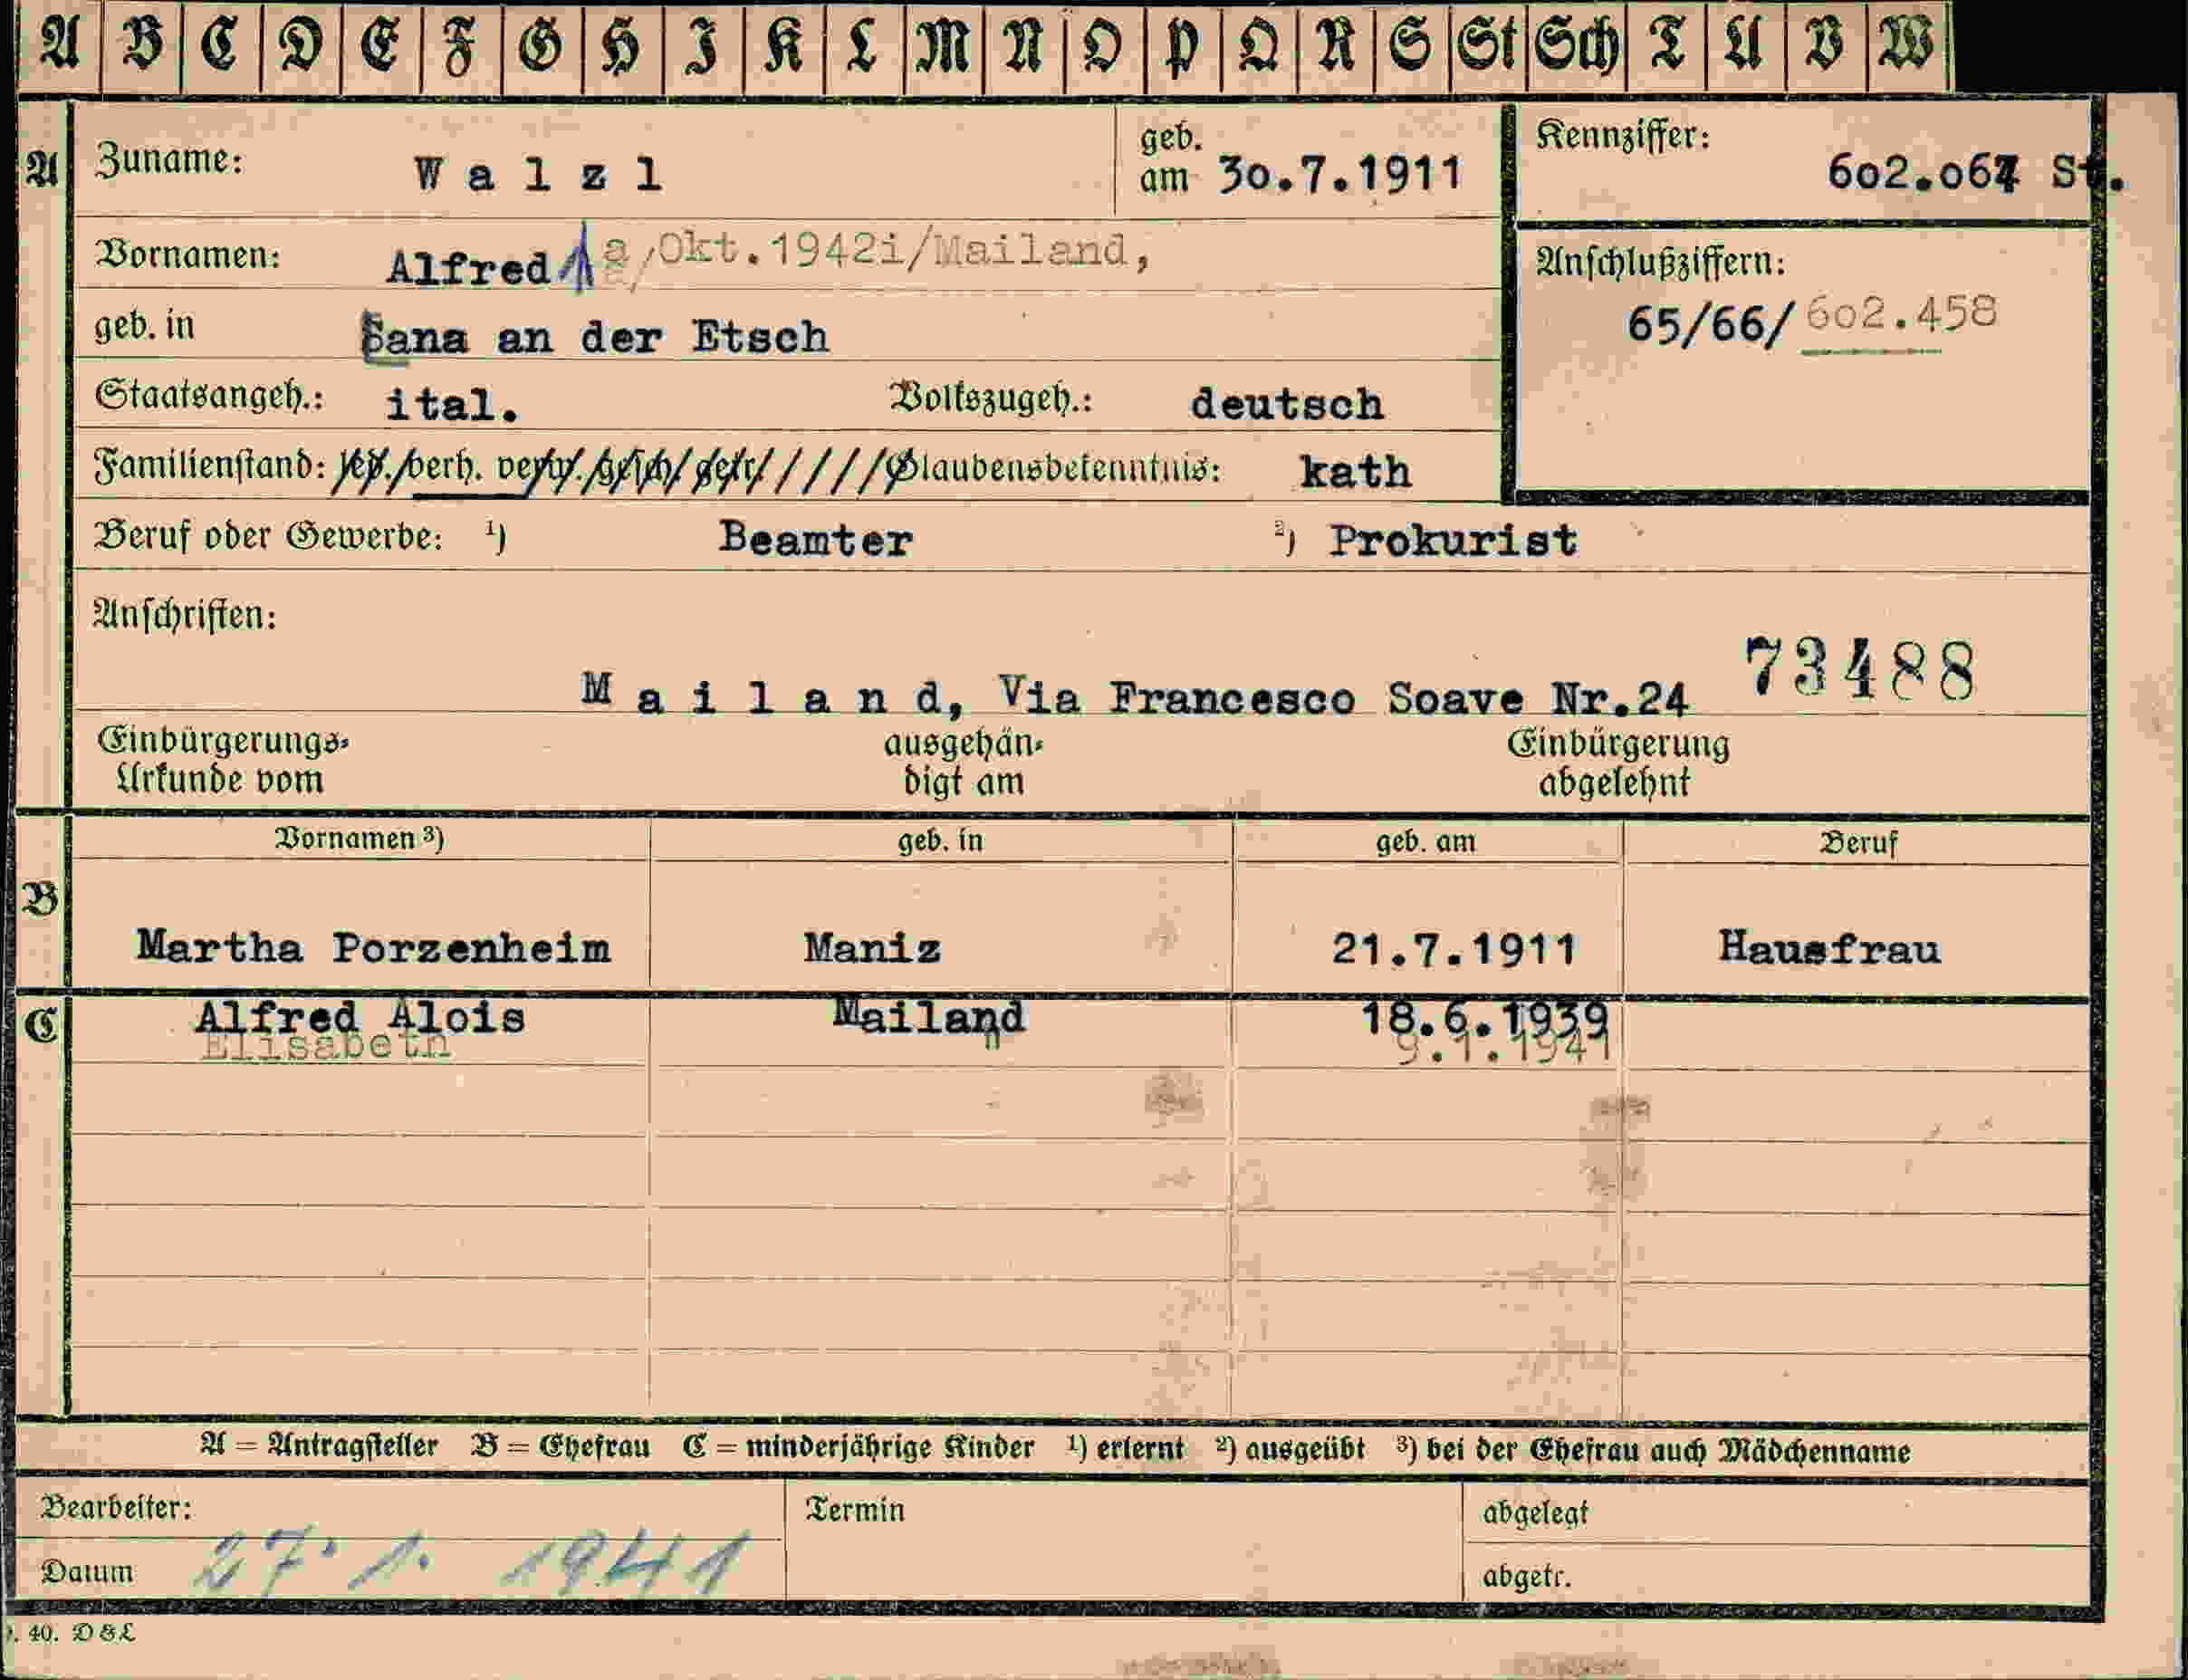 A B C D E F G H I K L M N O P Q R S St Sch T U V W
A Zuname: Walzl geb. am 30.7.1911 Kennziffer: 602.067 St.
Vornamen: Alfred Okt.1942i/Mailand,
Anschlußziffern:
65/66/602.458
geb. in Sana an der Etsch
Staatsangeh.: ital. Volkszugeh.: deutsch
Familienstand: led./verh. verw./gesch/getr///// Glaubensbekenntnis: kath
Beruf oder Gewerbe: 1) Beamter 2) Prokurist
Anschriften:
Mailand, Via Francesco Soave Nr.24 73488
Einbürgerungs-Urkunde vom ausgehän-digt am Einbürgerung abgelehnt
Vornamen 3) geb. in geb. am Beruf
B Martha Porzenheim Maniz 21.7.1911 Hausfrau
C Alfred Alois Mailand 18.6.1939
Elisabeth " 9.1.1941
A = Antragsteller B = Ehefrau C = minderjährige Kinder 1) erlernt 2) ausgeübt 3) bei der Ehefrau auch Mädchenname
Bearbeiter: Termin abgelegt
Datum 27. 1. 1941 abgetr.
40. D&L